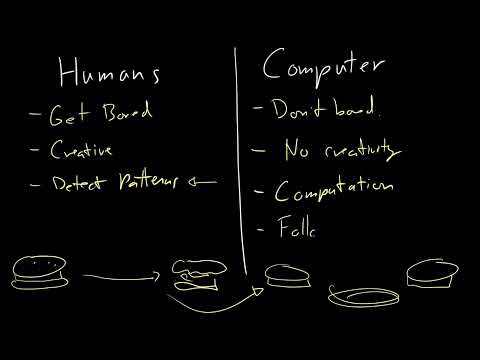 Humans
- Get Bored
- Creative
- Detect Patterns
Computer
- Don't bored.
- No creativity
- Computation
- Follo